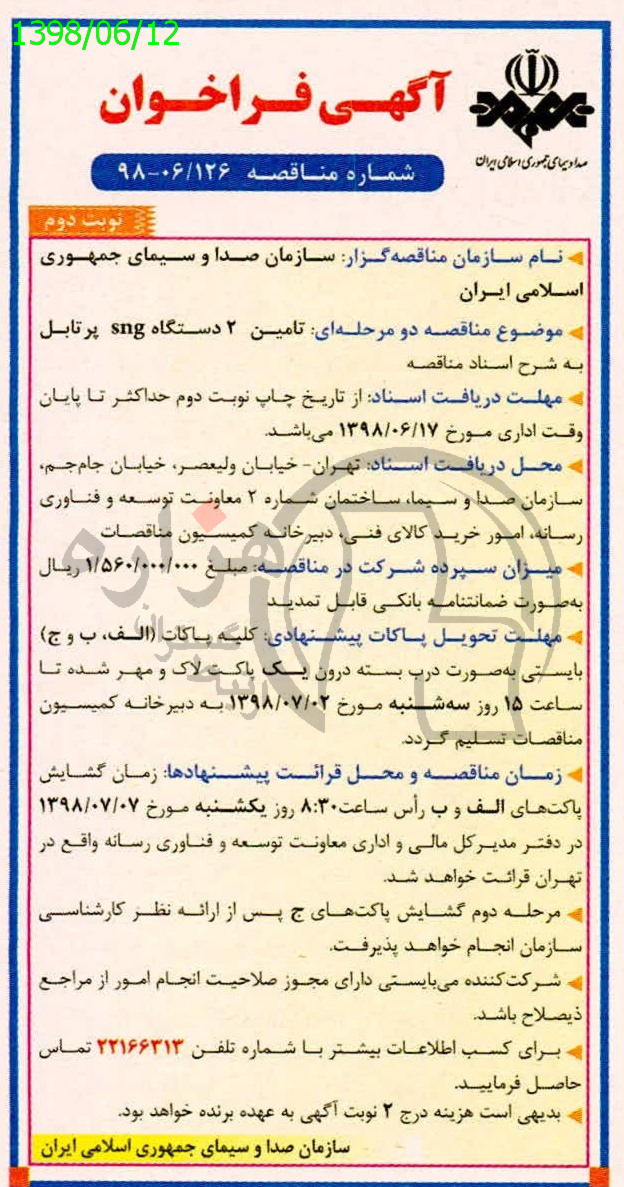 1398/06/12
صدا و سیمای جمهوری اسلامی ایران
آگهی فراخوان
شماره مناقصه ۹۸-۰۶/۱۲۶
نوبت دوم
نام سازمان مناقصه‌گزار: سازمان صدا و سیمای جمهوری
اسلامی ایران
موضوع مناقصه دو مرحله‌ای: تامیـن ۲ دستگاه sng پرتابل
به شرح اسناد مناقصه
مهلت دریافت اسناد: از تاریخ چاپ نوبت دوم حداکثر تا پایان
وقت اداری مورخ ۱۳۹۸/۰۶/۱۷ می‌باشد.
محل دریافت اسناد: تهران- خیابان ولیعصر، خیابان جام‌جم،
سازمان صدا و سیما، ساختمان شماره ۲ معاونت توسعه و فناوری
رسانه، امور خرید کالای فنی، دبیرخانه کمیسیون مناقصات
میزان سپرده شرکت در مناقصه: مبلغ ۱/۵۶۰/۰۰۰/۰۰۰ ریال
به‌صورت ضمانتنامه بانکی قابل تمدید
مهلت تحویل پاکات پیشنهادی: کلیه پاکات (الف، ب و ج)
بایستی به‌صورت درب بسته درون یک پاکت لاک و مهر شده تا
ساعت ۱۵ روز سه‌شنبه مورخ ۱۳۹۸/۰۷/۰۲ به دبیرخانه کمیسیون
مناقصات تسلیم گردد.
زمان مناقصه و محل قرائت پیشنهادها: زمان گشایش
پاکت‌های الف و ب رأس ساعت۸:۳۰ روز یکشنبه مورخ ۱۳۹۸/۰۷/۰۷
در دفتر مدیرکل مالی و اداری معاونت توسعه و فناوری رسانه واقع در
تهران قرائت خواهد شد.
مرحله دوم گشایش پاکت‌های ج پس از ارائه نظر کارشناسی
سازمان انجام خواهد پذیرفت.
شرکت‌کننده می‌بایستی دارای مجوز صلاحیت انجام امور از مراجع
ذیصلاح باشد.
برای کسب اطلاعات بیشتر با شماره تلفن ۲۲۱۶۶۳۱۳ تماس
حاصل فرمایید.
بدیهی است هزینه درج ۲ نوبت آگهی به عهده برنده خواهد بود.
سازمان صدا و سیمای جمهوری اسلامی ایران
هزاره